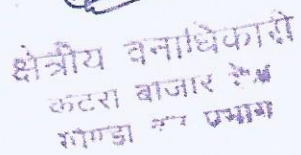 क्षेत्रीय वनाधिकारी
कटरा बाजार रेंज
गोण्डा वन प्रभाग